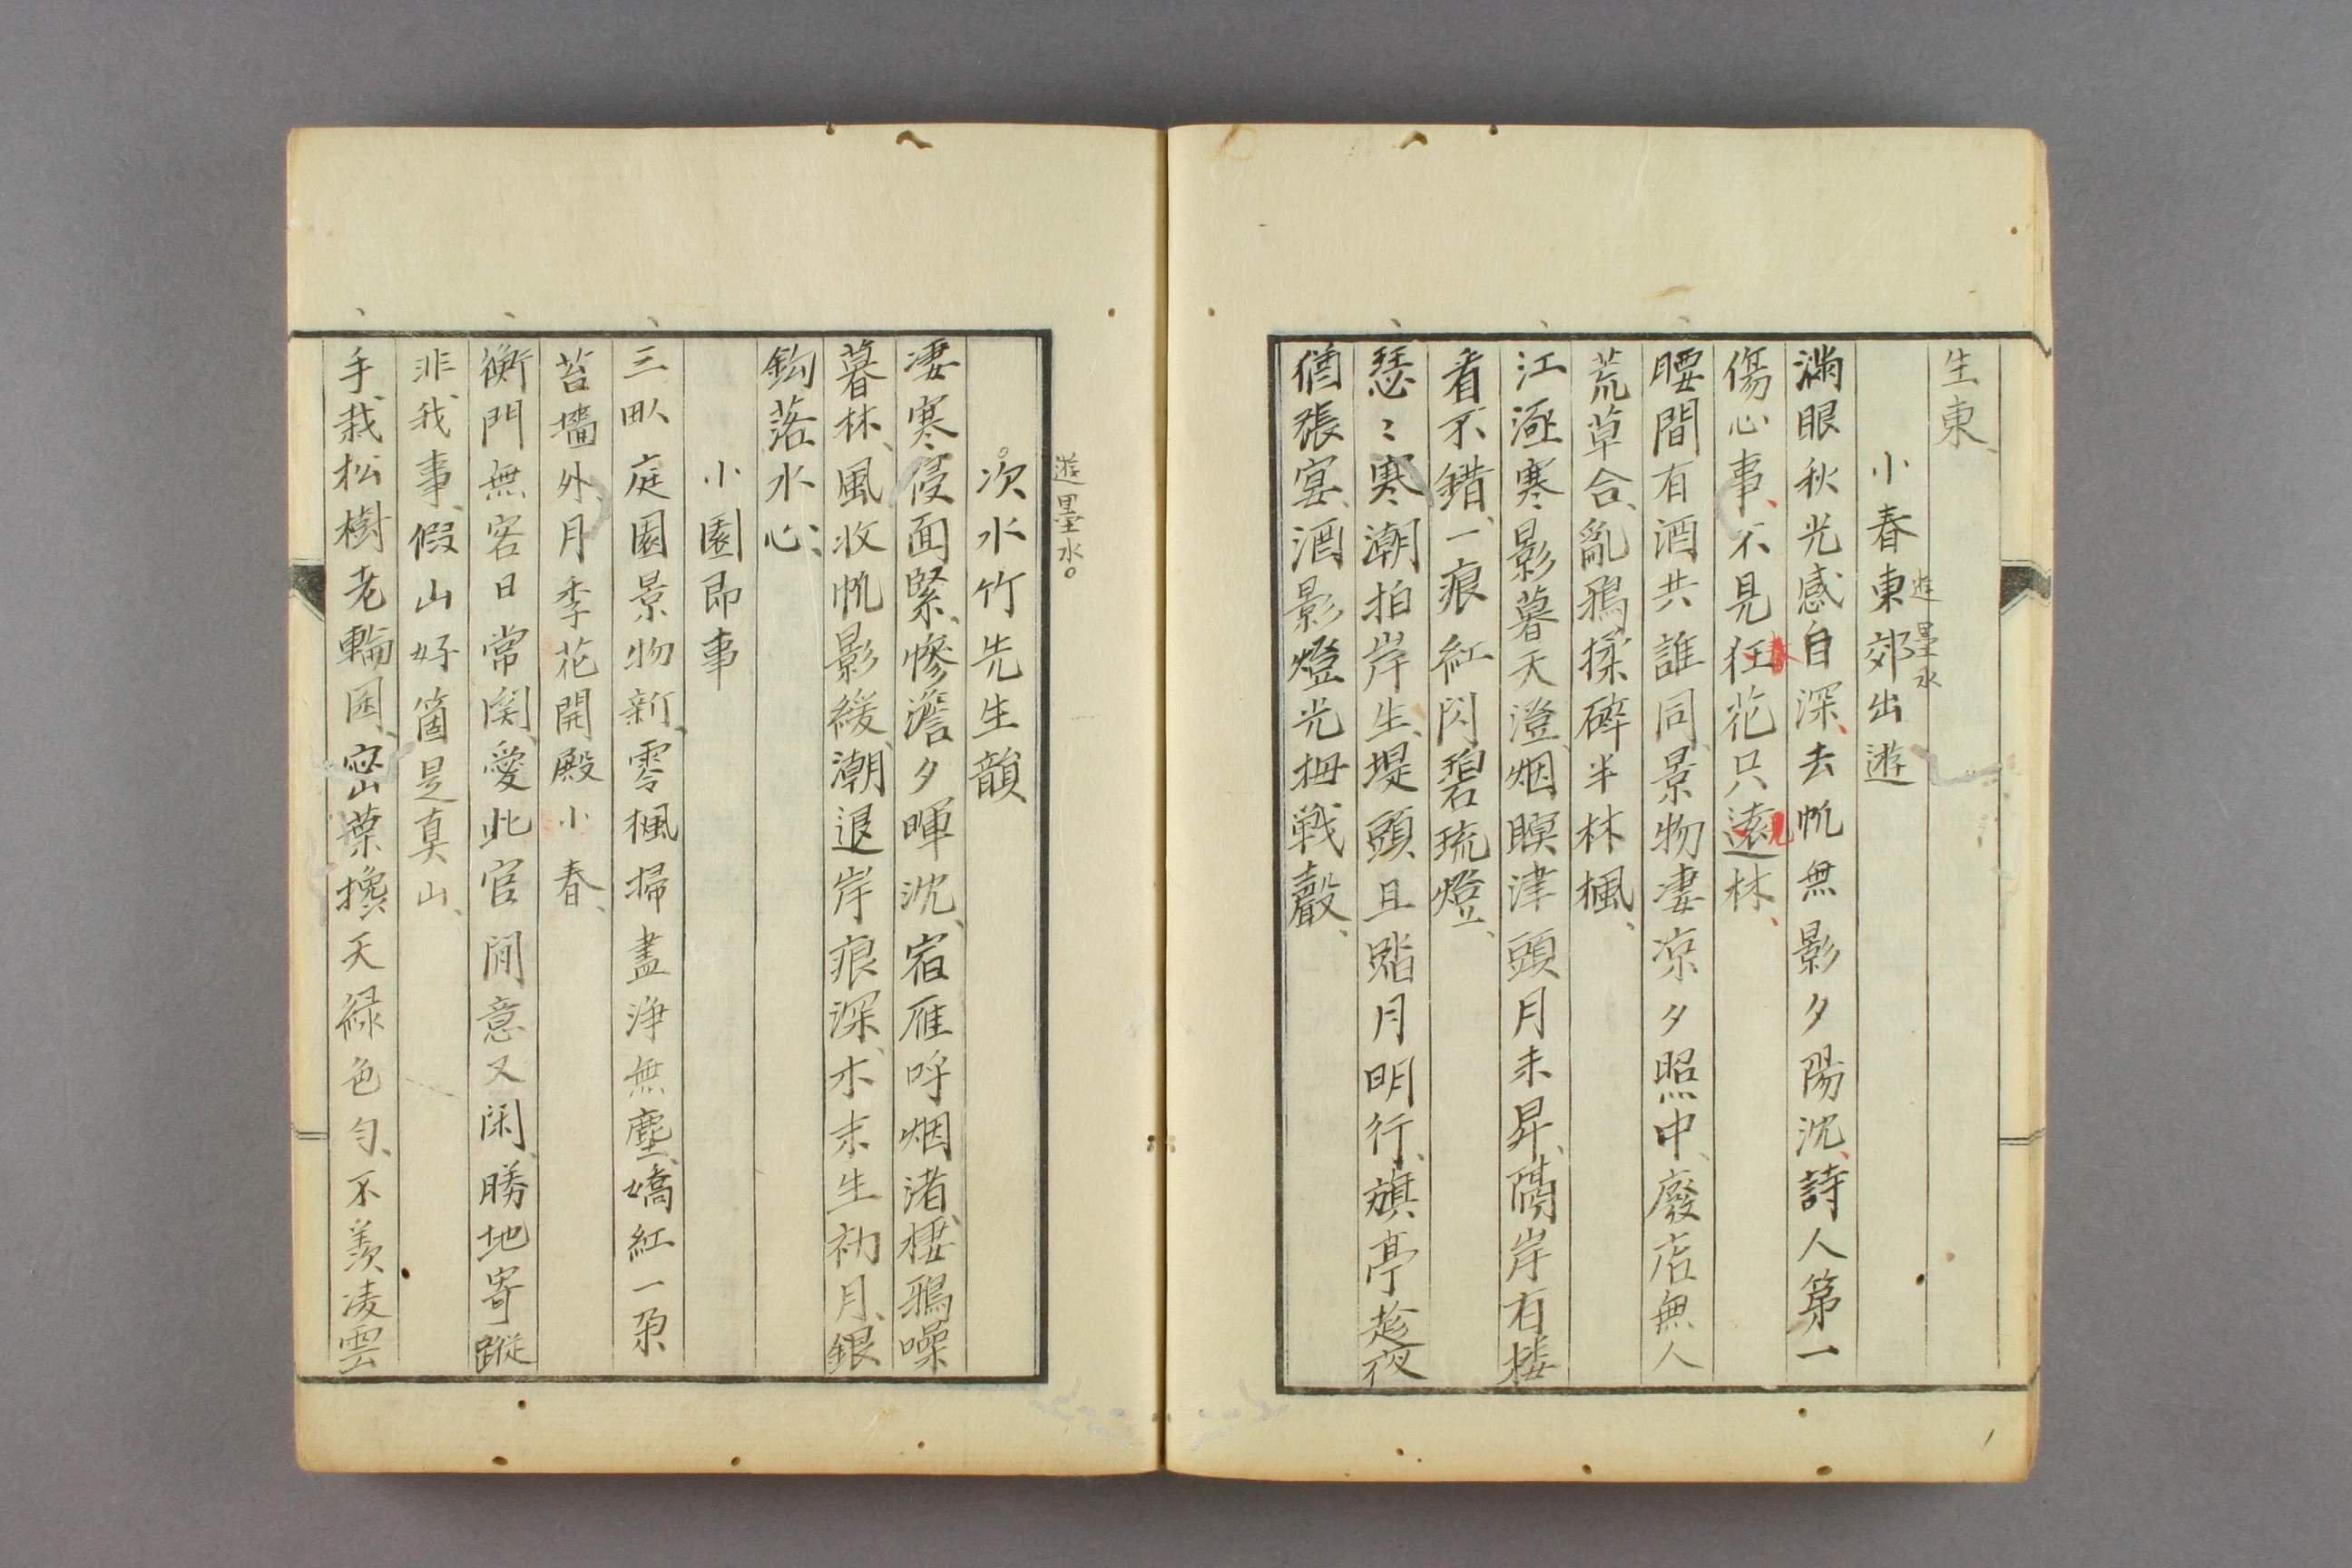 生東
小春東郊出遊
遊墨水
滿眼秋光感自深、去帆無影夕陽沈、詩人第一
傷心事、不見狂花只遠林、
春
見
腰間有酒共誰同、景物凄凉夕照中、廢店無人
荒草合、亂鴉揉碎半林楓、
江逕寒影暮天澄、烟瞑津頭月未昇、隔岸有楼
看不錯、一痕紅閃碧琉燈、
瑟〻寒潮拍岸生、堤頭且踏月明行、旗亭趁夜
猶張宴、酒影燈光拇戦聲、
遊墨水。
次水竹先生韻
凄寒侵面緊、惨澹夕暉沈、宿雁呼烟渚、棲鴉噪
暮林、風收帆影緩、潮退岸痕深、木末生初月、銀
鈎落水心、
小園即事
三畝庭園景物新、零楓掃盡淨無塵、嬌紅一朶
苔墻外、月季花開殿小春、
衡門無客日常関、愛此官閒意又閑、勝地寄蹤
非我事、假山好箇是真山、
手栽松樹老輪囷、密葉攙天緑色匀、不羨凌雲